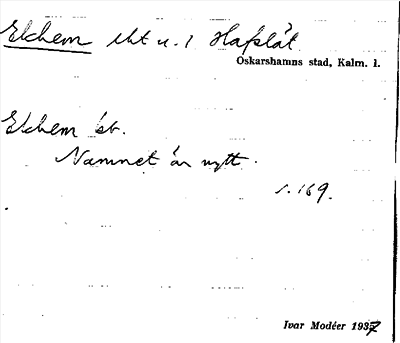 Ekhem lht u. 1 Hafslät
Oskarshamns stad, Kalm. l.
Ekhem
Namnet är nytt.
s. 169.
Ivar Modéer 1937